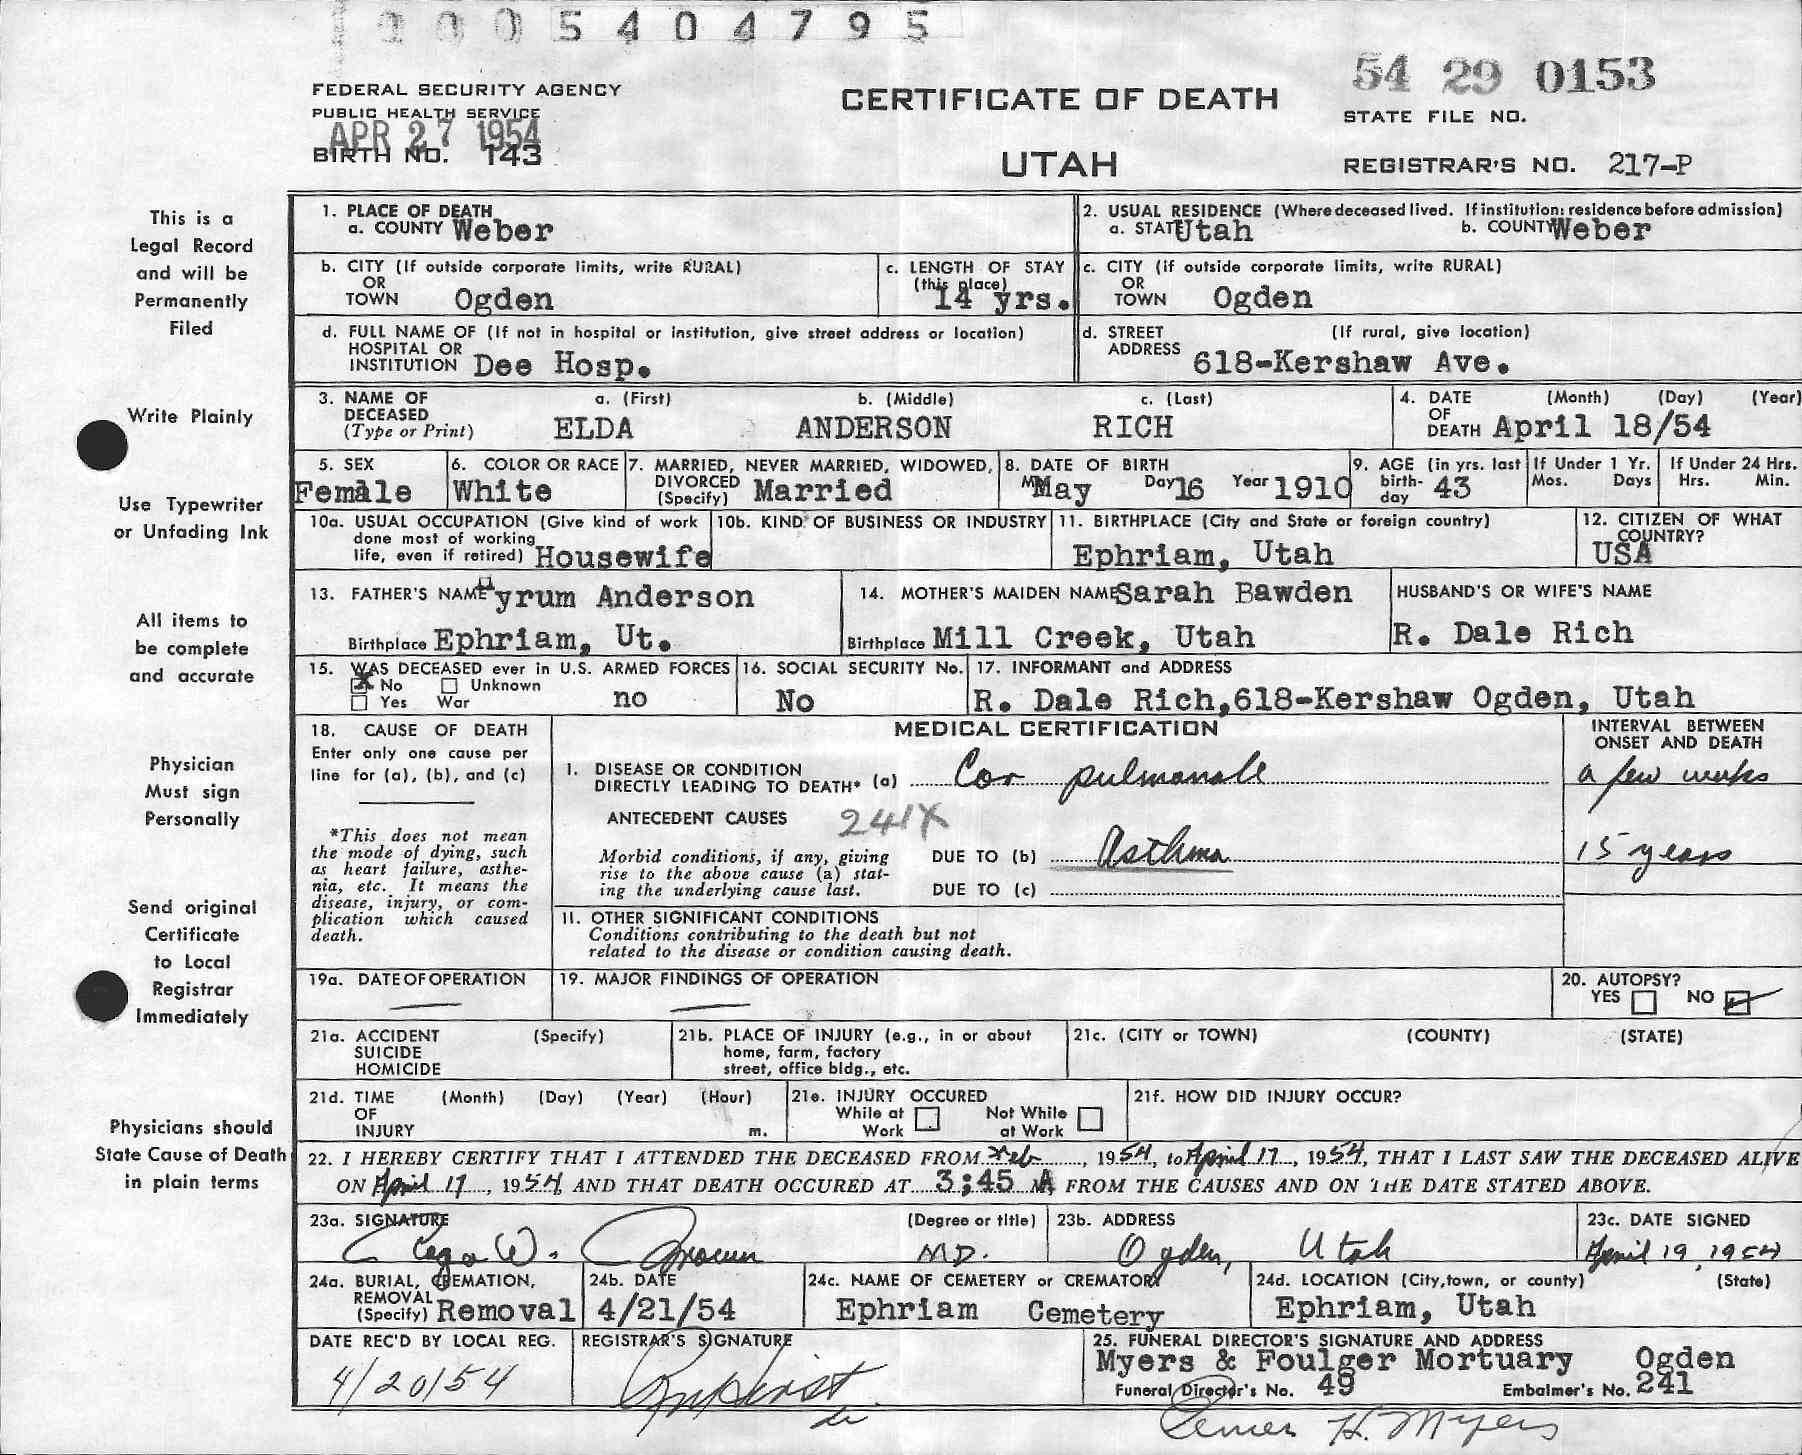 1005404795
54 29 0153
STATE FILE NO.
FEDERAL SECURITY AGENCY
PUBLIC HEALTH SERVICE
APR 27 1954
BIRTH NO. 143
CERTIFICATE OF DEATH
UTAH
REGISTRAR'S NO. 217-P
This is a
Legal Record
and will be
Permanently
Filed
Write Plainly
Use Typewriter
or Unfading Ink
All items to
be complete
and accurate
Physician
Must sign
Personally
Send original
Certificate
to Local
Registrar
Immediately
Physicians should
State Cause of Death
in plain terms
1. PLACE OF DEATH
a. COUNTY Weber
2. USUAL RESIDENCE (Where deceased lived. If institution: residence before admission)
a. STATE Utah b. COUNTY Weber
b. CITY (If outside corporate limits, write RURAL)
OR
TOWN Ogden
c. LENGTH OF STAY
(this place)
14 yrs.
c. CITY (if outside corporate limits, write RURAL)
OR
TOWN Ogden
d. FULL NAME OF (If not in hospital or institution, give street address or location)
HOSPITAL OR
INSTITUTION Dee Hosp.
d. STREET (If rural, give location)
ADDRESS 618-Kershaw Ave.
3. NAME OF DECEASED (Type or Print)
a. (First) b. (Middle) c. (Last)
ELDA ANDERSON RICH
4. DATE OF DEATH (Month) (Day) (Year)
April 18/54
5. SEX
Female
6. COLOR OR RACE
White
7. MARRIED, NEVER MARRIED, WIDOWED,
DIVORCED
(Specify) Married
8. DATE OF BIRTH
May Day 16 Year 1910
9. AGE (in yrs. last
birth-
day 43
If Under 1 Yr.
Mos. Days
If Under 24 Hrs.
Hrs. Min.
10a. USUAL OCCUPATION (Give kind of work
done most of working
life, even if retired) Housewife
10b. KIND OF BUSINESS OR INDUSTRY
11. BIRTHPLACE (City and State or foreign country)
Ephriam, Utah
12. CITIZEN OF WHAT
COUNTRY?
USA
13. FATHER'S NAME Hyrum Anderson
Birthplace Ephriam, Ut.
14. MOTHER'S MAIDEN NAME Sarah Bawden
Birthplace Mill Creek, Utah
HUSBAND'S OR WIFE'S NAME
R. Dale Rich
15. WAS DECEASED ever in U.S. ARMED FORCES
X No Unknown
Yes War no
16. SOCIAL SECURITY No.
No
17. INFORMANT and ADDRESS
R. Dale Rich, 618-Kershaw Ogden, Utah
18. CAUSE OF DEATH
Enter only one cause per
line for (a), (b), and (c)
*This does not mean
the mode of dying, such
as heart failure, asthe-
nia, etc. It means the
disease, injury, or com-
plication which caused
death.
MEDICAL CERTIFICATION
INTERVAL BETWEEN
ONSET AND DEATH
I. DISEASE OR CONDITION
DIRECTLY LEADING TO DEATH* (a) Cor pulmonale a few weeks
ANTECEDENT CAUSES 241X
Morbid conditions, if any, giving
rise to the above cause (a) stat-
ing the underlying cause last.
DUE TO (b) Asthma 15 years
DUE TO (c)
II. OTHER SIGNIFICANT CONDITIONS
Conditions contributing to the death but not
related to the disease or condition causing death.
19a. DATE OF OPERATION
—
19. MAJOR FINDINGS OF OPERATION
—
20. AUTOPSY?
YES NO
21a. ACCIDENT (Specify)
SUICIDE
HOMICIDE
21b. PLACE OF INJURY (e.g., in or about
home, farm, factory
street, office bldg., etc.
21c. (CITY or TOWN) (COUNTY) (STATE)
21d. TIME (Month) (Day) (Year) (Hour)
OF
INJURY m.
21e. INJURY OCCURED
While at Work Not While at Work
21f. HOW DID INJURY OCCUR?
22. I HEREBY CERTIFY THAT I ATTENDED THE DECEASED FROM Feb, 1954, to April 17, 1954, THAT I LAST SAW THE DECEASED ALIVE
ON April 17, 1954, AND THAT DEATH OCCURED AT 3;45 A M, FROM THE CAUSES AND ON THE DATE STATED ABOVE.
23a. SIGNATURE (Degree or title)
W. Brown MD.
23b. ADDRESS
Ogden, Utah
23c. DATE SIGNED
April 19, 1954
24a. BURIAL, CREMATION,
REMOVAL
(Specify) Removal
24b. DATE
4/21/54
24c. NAME OF CEMETERY or CREMATORY
Ephriam Cemetery
24d. LOCATION (City, town, or county) (State)
Ephriam, Utah
DATE REC'D BY LOCAL REG.
4/20/54
REGISTRAR'S SIGNATURE
25. FUNERAL DIRECTOR'S SIGNATURE AND ADDRESS
Myers & Foulger Mortuary Ogden
Funeral Director's No. 49 Embalmer's No. 241
H. Myers